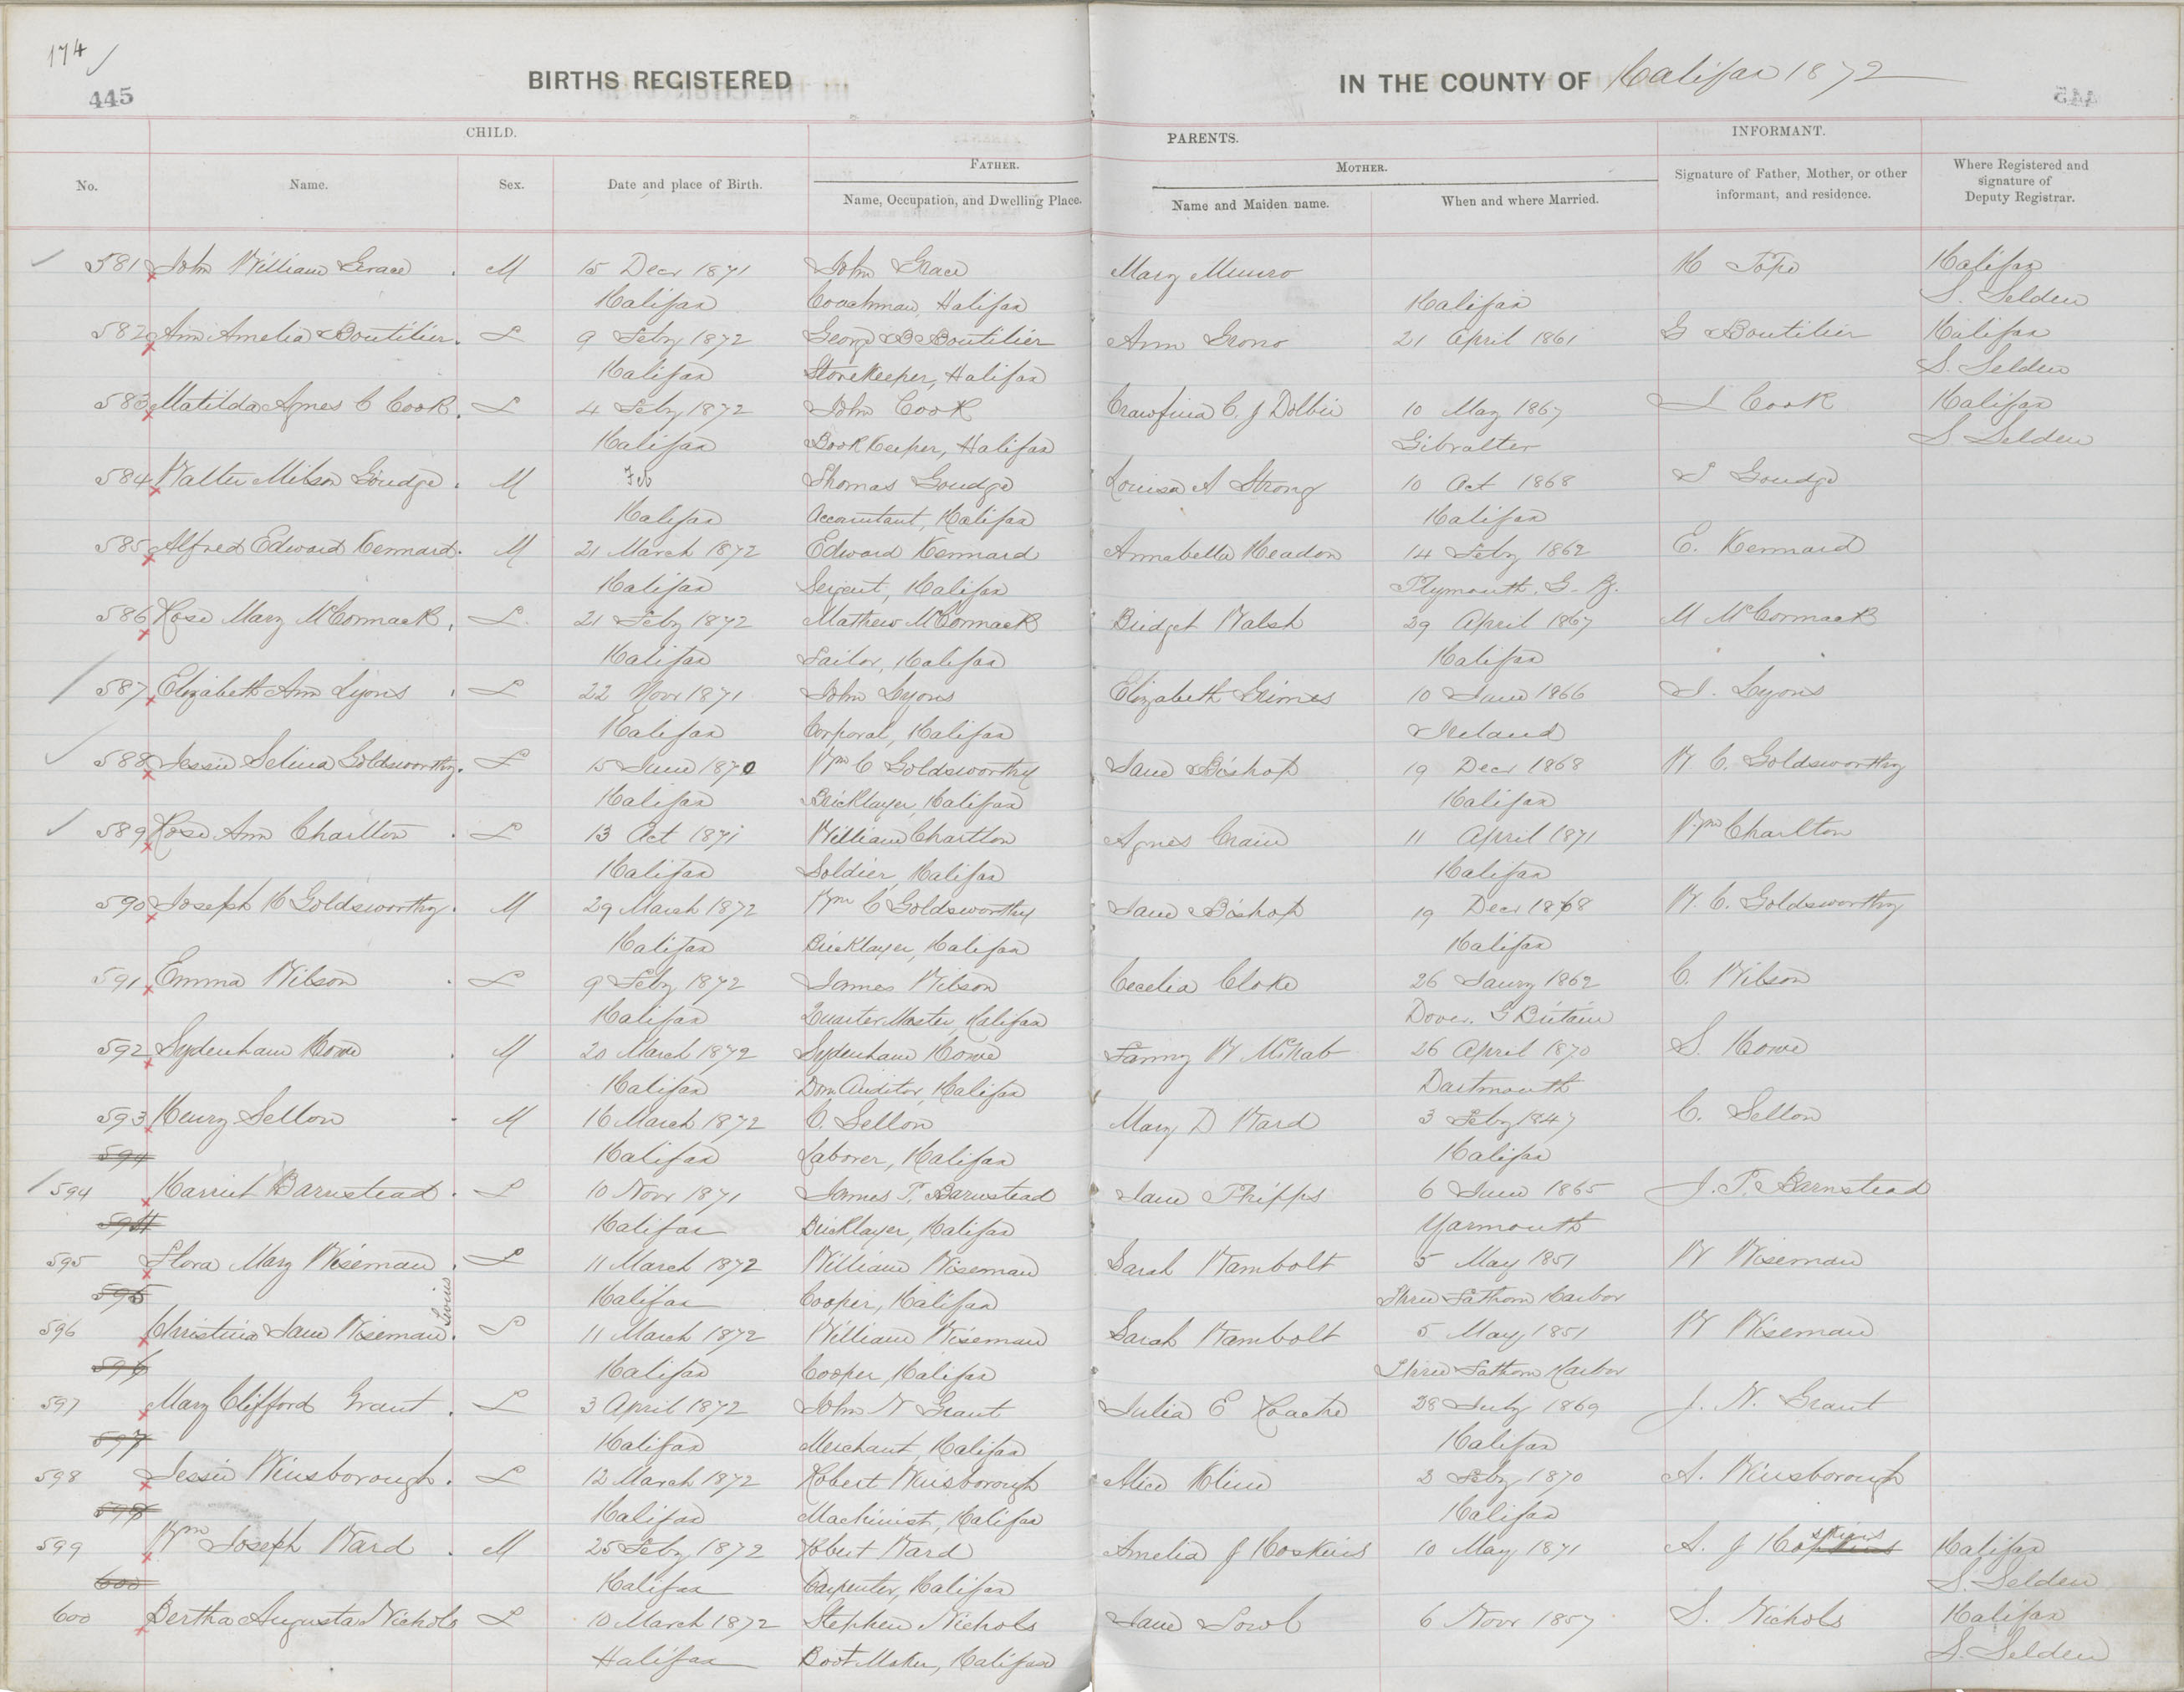 174
445
BIRTHS REGISTERED IN THE COUNTY OF Halifax 1872
CHILD. PARENTS. INFORMANT.
FATHER. MOTHER.
No. Name. Sex. Date and place of Birth. Name, Occupation, and Dwelling Place. Name and Maiden name. When and where Married. Signature of Father, Mother, or other informant, and residence. Where Registered and signature of Deputy Registrar.
581 John William Grace M 15 Decr 1871 John Grace Mary Munro H Pope Halifax
Halifax Coachman, Halifax Halifax S. Selden
582 Ann Amelia Boutilier F 9 Feby 1872 George B Boutilier Ann Grono 21 April 1861 G Boutilier Halifax
Halifax Storekeeper, Halifax S. Selden
583 Matilda Agnes C Cook F 4 Feby 1872 John Cook C. J Dolbir 10 May 1867 J Cook Halifax
Halifax Bookkeeper, Halifax Gibralter S Selden
584 Walter Milson Goudge M Feb Thomas Goudge Louisa A Strong 10 Oct 1868 T Goudge
Halifax Accountant, Halifax Halifax
585 Alfred Edward Kennard M 21 March 1872 Edward Kennard Annabella Headon 14 Feby 1862 E. Kennard
Halifax Sergent, Halifax Plymouth, G. B.
586 Rose Mary McCormack F 21 Feby 1872 Mathew McCormack Bridget Walsh 29 April 1867 M McCormack
Halifax Tailor, Halifax Halifax
587 Elizabeth Ann Lyons F 22 Novr 1871 John Lyons Elizabeth Grimes 10 June 1866 J. Lyons
Halifax Corporal, Halifax Ireland
588 Jessie Selina Goldsworthy F 15 June 1870 Wm C Goldsworthy Jane Bishop 19 Decr 1868 W. C. Goldsworthy
Halifax Bricklayer, Halifax Halifax
589 Rose Ann Charlton F 13 Oct 1871 William Charlton Agnes Crain 11 April 1871 Wm Charlton
Halifax Soldier, Halifax Halifax
590 Joseph H Goldsworthy M 29 March 1872 Wm C Goldsworthy Jane Bishop 19 Decr 1868 W. C. Goldsworthy
Halifax Bricklayer, Halifax Halifax
591 Emma Wilson F 9 Feby 1872 James Wilson Cecelia Cloke 26 Jany 1862 C. Wilson
Halifax Quarter Master, Halifax Dover. G Britain
592 Sydenham Howe M 20 March 1872 Sydenham Howe Fanny W McNab 26 April 1870 S. Howe
Halifax Dom Auditor, Halifax Dartmouth
593 Henry Sellon M 16 March 1872 C. Sellon Mary D Ward 3 Feby 1847 C. Sellon
594 Halifax Laborer, Halifax Halifax
594 Harriet Barnstead F 10 Novr 1871 James T. Barnstead Jane Phipps 6 June 1865 J. T. Barnstead
594 Halifax Bricklayer, Halifax Yarmouth
595 Flora Mary Wiseman F 11 March 1872 William Wiseman Sarah Wambolt 5 May 1851 W Wiseman
595 Halifax Cooper, Halifax Three Fathom Harbor
596 Christina Jane Wiseman Twins F 11 March 1872 William Wiseman Sarah Wambolt 5 May 1851 W Wiseman
596 Halifax Cooper, Halifax Three Fathom Harbor
597 Mary Clifford Grant F 3 April 1872 John N Grant Julia E Roache 28 July 1869 J. N. Grant
597 Halifax Merchant, Halifax Halifax
598 Jessie Winsborough F 12 March 1872 Robert Winsborough Alice Kline 3 Feby 1870 A. Winsborough
598 Halifax Machinist, Halifax Halifax
599 Wm Joseph Ward M 25 Feby 1872 Robert Ward Amelia J Hoskins 10 May 1871 A. J Hopkins skins Halifax
600 Halifax Carpenter, Halifax S. Selden
600 Bertha Augusta Nichols F 10 March 1872 Stephen Nichols Jane 6 Novr 1857 S. Nichols Halifax
Halifax Boot Maker, Halifax S. Selden